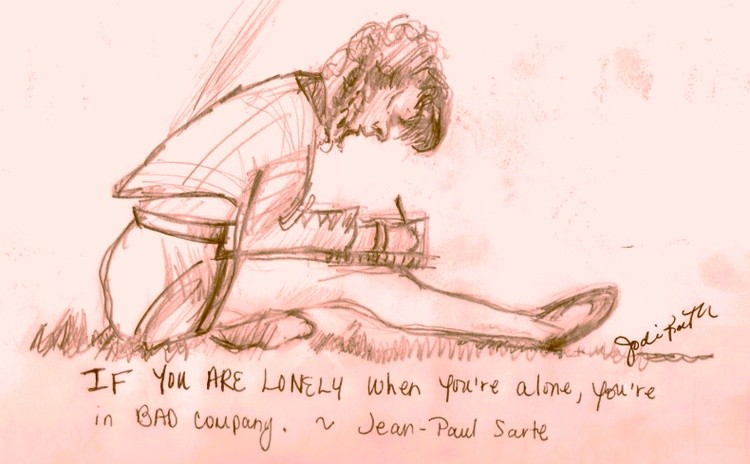 Jodi Kath
IF YOU ARE LONELY when you're alone, you're
in BAD company. ~ Jean-Paul Sarte